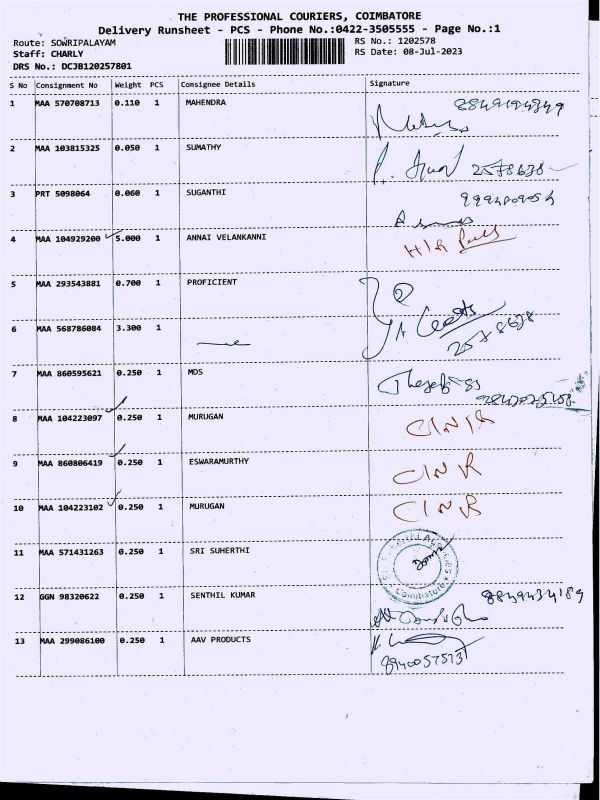 THE PROFESSIONAL COURIERS, COIMBATORE
Delivery Runsheet - PCS - Phone No.:0422-3505555 - Page No.:1
Route: SOWRIPALAYAM RS No.: 1202578
Staff: CHARLY RS Date: 08-Jul-2023
DRS No.: DCJB120257801
S No Consignment No Weight PCS Consignee Details Signature
1 MAA 570708713 0.110 1 MAHENDRA
2 MAA 103815325 0.050 1 SUMATHY
2578638
3 PRT 5098064 0.060 1 SUGANTHI
4 MAA 104929200 5.000 1 ANNAI VELANKANNI
5 MAA 293543881 0.700 1 PROFICIENT
6 MAA 568786084 3.300 1
2578638
7 MAA 860595621 0.250 1 MDS
8 MAA 104223097 0.250 1 MURUGAN
9 MAA 860806419 0.250 1 ESWARAMURTHY
10 MAA 104223102 0.250 1 MURUGAN
11 MAA 571431263 0.250 1 SRI SUHERTHI
Coimbatore
12 GGN 98320622 0.250 1 SENTHIL KUMAR
13 MAA 299086100 0.250 1 AAV PRODUCTS